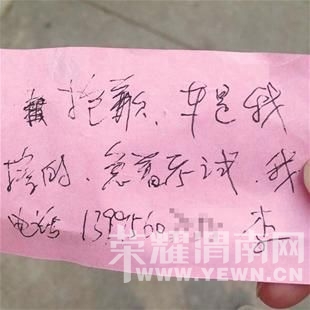 抱歉、车是我
撞的、急着考试、我
电话 1399560 李
荣耀渭南网
WWW.YEWN.CN